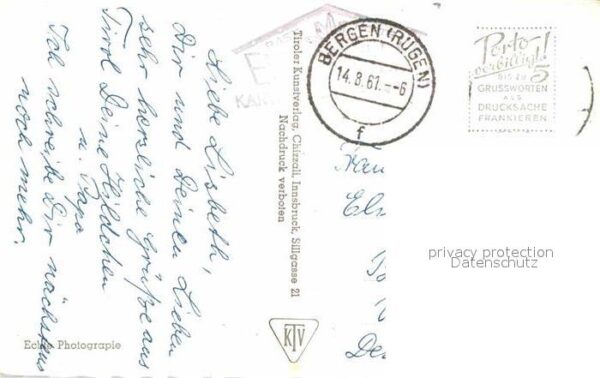 Liebe Lisbeth,
Dir und Deinen Lieben
sehr herzliche Grüße aus
Tirol Deine Hildchen
u. Papa
Ich schreibe Dir nächstens
noch mehr.
Echte Photograpie
Tiroler Kunstverlag, Chizzali, Innsbruck, Sillgasse 21
Nachdruck verboten
KTV
BERGEN (RÜGEN)
14.8.61.-6
f
Porto
verbilligt!
5
BIS ZU
GRUSSWORTEN
ALS
DRUCKSACHE
FRANKIEREN
privacy protection
Datenschutz